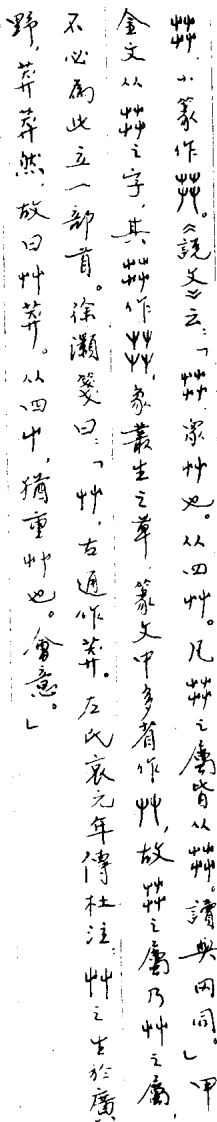 茻，小篆作茻。《說文》云：「茻，衆艸也。从四屮。凡茻之屬皆从茻。讀與网同。」甲
金文从茻之字，其茻作茻，象叢生之草，篆文中多省作艸，故茻之屬乃艸之屬，
不必爲此立一部首。徐灝箋曰：「茻，古通作莽。左氏哀元年傳杜注：艸之生於廣
野，莽莽然，故曰艸莽。从四屮，猶重艸也。會意。」